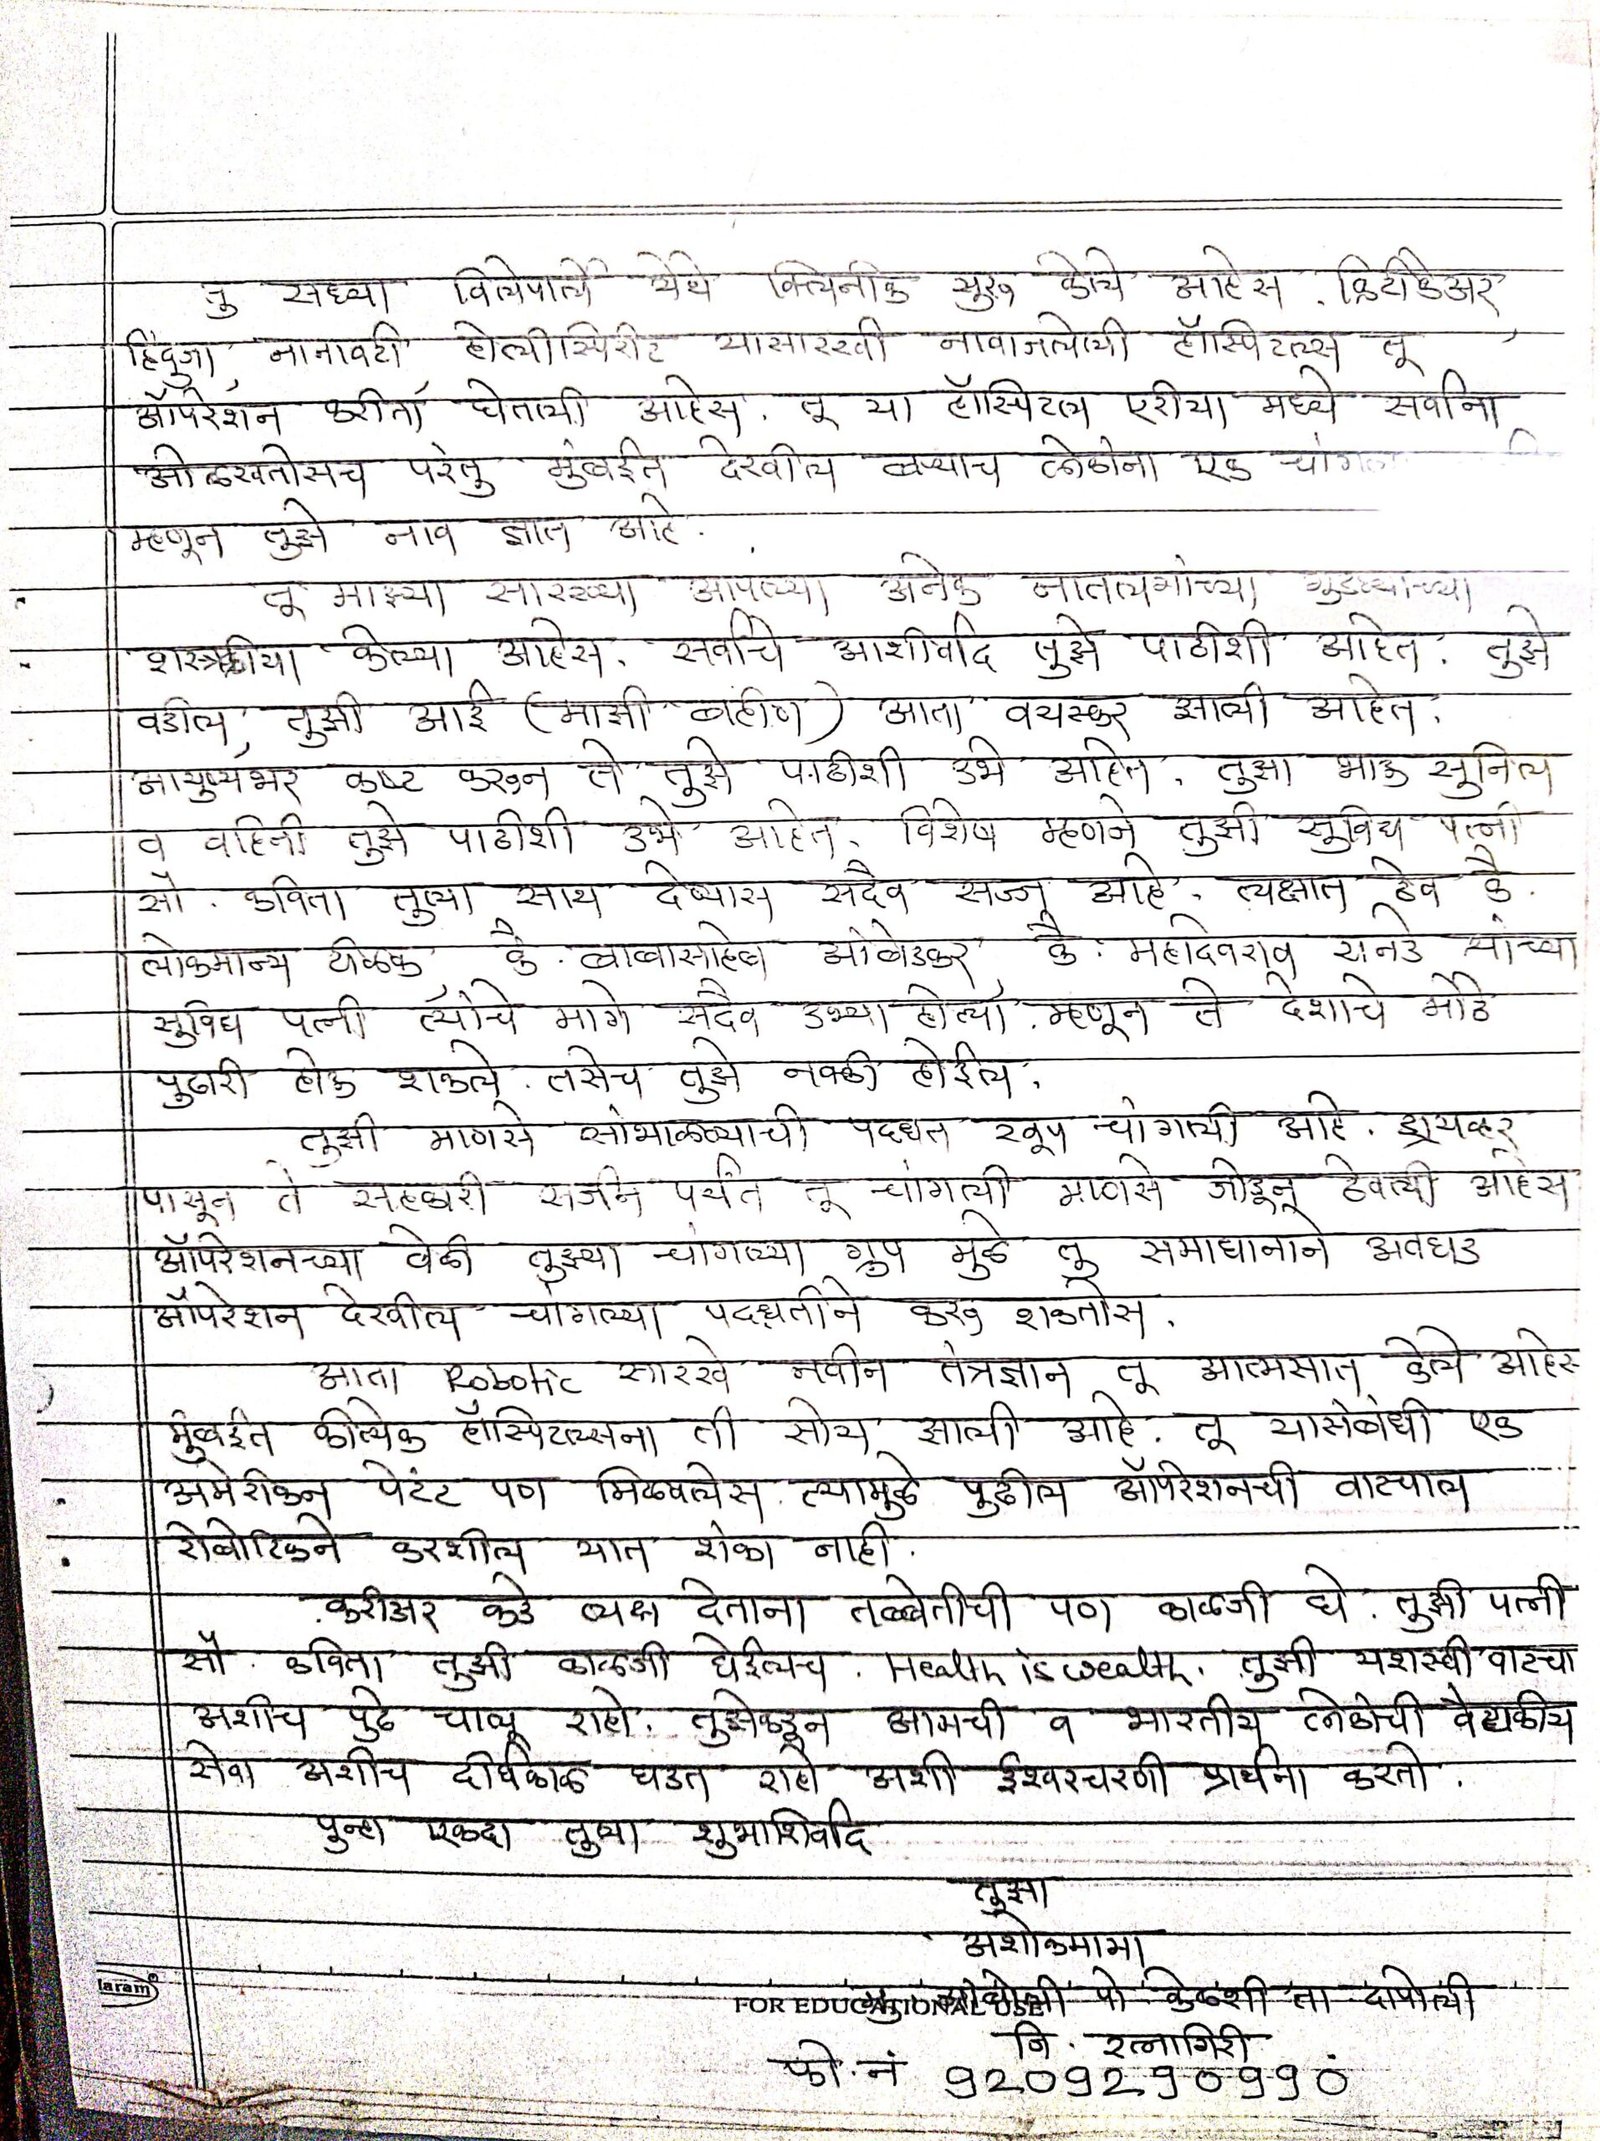 तु सध्या विलेपार्ले येथे क्लिनीक सुरु केले आहेस. क्रिटीकेअर,
हिंदुजा, नानावटी, होलीस्पिरीट यासारखी नावाजलेली हॉस्पिटल्स तू
ऑपरेशन करीता घेतली आहेस. तू या हॉस्पिटल एरीया मध्ये सर्वांना
ओळखतोसच परंतु मुंबईत देखील बऱ्याच लोकांना एक
म्हणून तुझे नाव ज्ञात आहे.
तू माझ्या सारख्या आपल्या अनेक नातलगांच्या गुडघ्याच्या
शस्त्रक्रीया केल्या आहेस. सर्वांचे आशीर्वाद तुझे पाठीशी आहेत. तुझे
वडील, तुझी आई (माझी बहीण) आता वयस्कर झाली आहेत.
आयुष्यभर कष्ट करुन ते तुझे पाठीशी उभे आहेत. तुझा भाऊ सुनिल
व वहिनी तुझे पाठीशी उभे आहेत. विशेष म्हणजे तुझी सुविद्य पत्नी
सौ. कविता तुला साथ देण्यास सदैव सज्ज आहे. लक्षात ठेव कै.
लोकमान्य टीळक, कै. बाबासाहेब आंबेडकर, कै. महादेवराव रानडे यांच्या
सुविद्य पत्नी त्यांचे मागे सदैव उभ्या होत्या. म्हणून ते देशाचे मोठे
पुढारी होऊ शकले. तसेच तुझे नक्की होईल.
तुझी माणसे सांभाळण्याची पद्धत खूप चांगली आहे. ड्रायव्हर
पासून ते सहकारी सर्जन पर्यंत तू चांगली माणसे जोडून ठेवली आहेस
ऑपरेशनच्या वेळी तुझ्या चांगल्या ग्रुप मुळे तू समाधानाने अवघड
ऑपरेशन देखील चांगल्या पद्धतीने करु शकतोस.
आता Robotic सारखे नवीन तंत्रज्ञान तू आत्मसात केले आहेस
मुंबईत कीत्येक हॉस्पिटल्सना ती सोय झाली आहे. तू यासंबंधी एक
अमेरीकन पेटंट पण मिळवलेस. त्यामुळे पुढील ऑपरेशनची वाटचाल
रोबोटिकने करशील यात शंका नाही.
करीअर कडे लक्ष देताना तब्बेतीची पण काळजी घे. तुझी पत्नी
सौ. कविता तुझी काळजी घेईलच. Health is wealth. तुझी यशस्वी वाटचाल
अशीच पुढे चालू राहो. तुझेकडून आमची व भारतीय लोकांची वैद्यकीय
सेवा अशीच दीर्घकाळ घडत राहो अशी ईश्वरचरणी प्रार्थना करतो.
पुन्हा एकदा तुला शुभाशिर्वाद
तुझा
अशोकमामा
laram®
FOR EDUCATIONAL USE
मु पो केळशी ता दापोली
जि. रत्नागिरी
फो. नं ९२०९२९०९९०